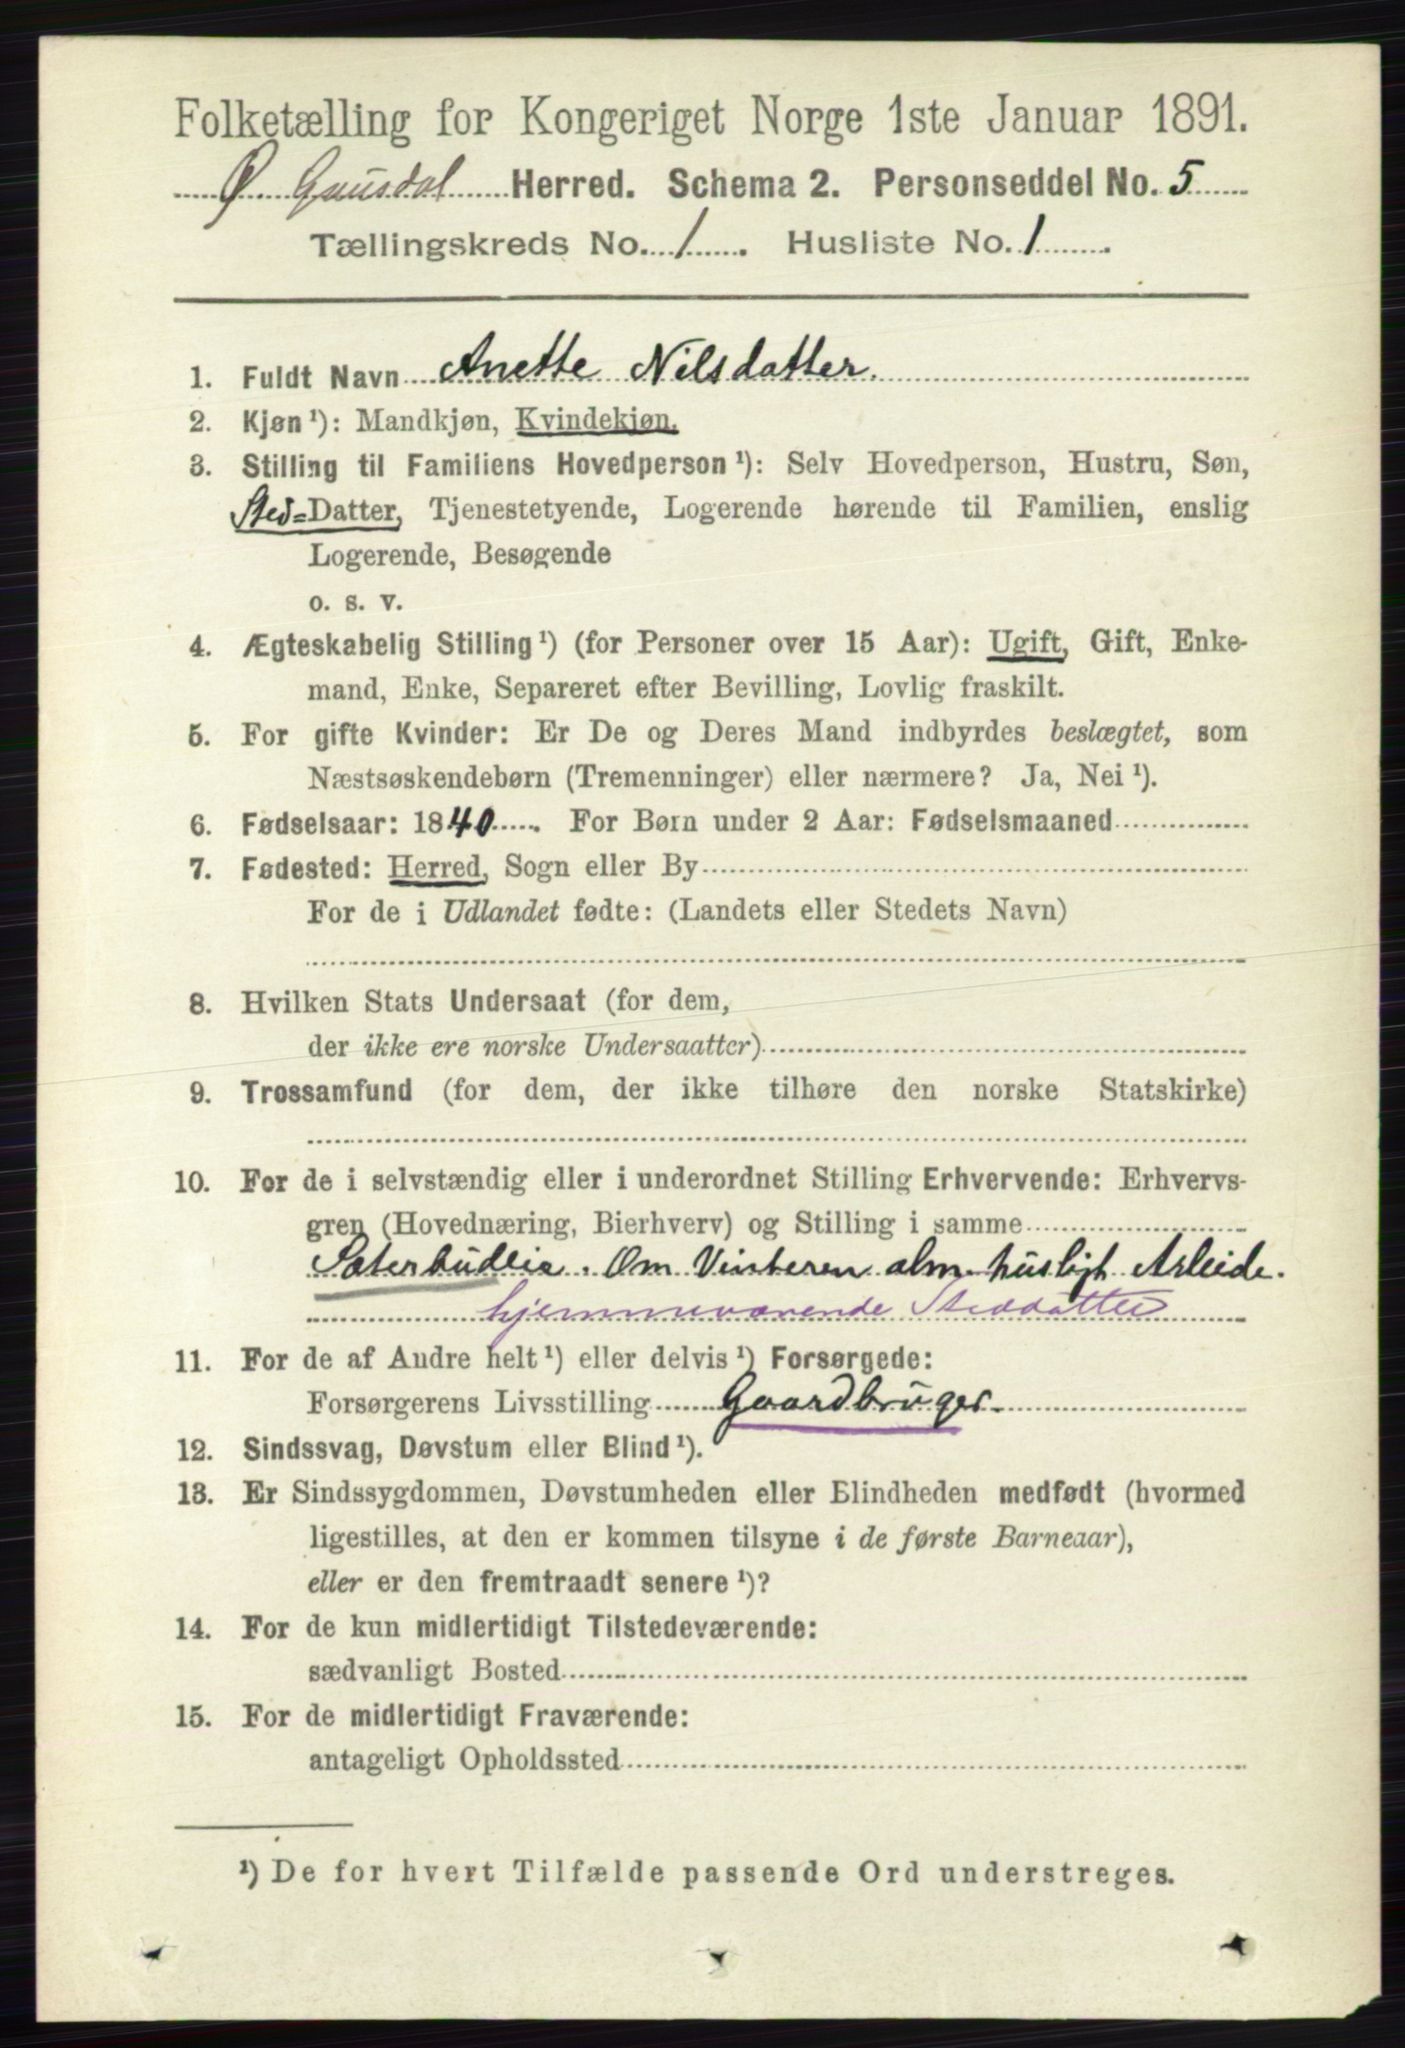 Folketælling for Kongeriget Norge 1ste Januar 1891.
Ø. Gausdal Herred. Schema 2. Personseddel No. 5
Tællingskreds No. 1. Husliste No. 1.
1. Fuldt Navn Anette Nilsdatter.
2. Kjøn¹): Mandkjøn, Kvindekjøn.
3. Stilling til Familiens Hovedperson¹): Selv Hovedperson, Hustru, Søn,
Sted=Datter, Tjenestetyende, Logerende hørende til Familien, enslig
Logerende, Besøgende
o. s. v.
4. Ægteskabelig Stilling¹) (for Personer over 15 Aar): Ugift, Gift, Enke-
mand, Enke, Separeret efter Bevilling, Lovlig fraskilt.
5. For gifte Kvinder: Er De og Deres Mand indbyrdes beslægtet, som
Næstsøskendebørn (Tremenninger) eller nærmere? Ja, Nei¹).
6. Fødselsaar: 1840. For Børn under 2 Aar: Fødselsmaaned
7. Fødested: Herred, Sogn eller By
For de i Udlandet fødte: (Landets eller Stedets Navn)
8. Hvilken Stats Undersaat (for dem,
der ikke ere norske Undersaatter)
9. Trossamfund (for dem, der ikke tilhøre den norske Statskirke)
10. For de i selvstændig eller i underordnet Stilling Erhvervende: Erhvervs-
gren (Hovednæring, Bierhverv) og Stilling i samme
Sæterbudeie. Om Vinteren alm. husligt Arbeide.
hjemmeværende Steddatter
11. For de af Andre helt¹) eller delvis¹) Forsørgede:
Forsørgerens Livsstilling Gaardbruger.
12. Sindssvag, Døvstum eller Blind¹).
13. Er Sindssygdommen, Døvstumheden eller Blindheden medfødt (hvormed
ligestilles, at den er kommen tilsyne i de første Barneaar),
eller er den fremtraadt senere¹)?
14. For de kun midlertidigt Tilstedeværende:
sædvanligt Bosted
15. For de midlertidigt Fraværende:
antageligt Opholdssted
¹) De for hvert Tilfælde passende Ord understreges.